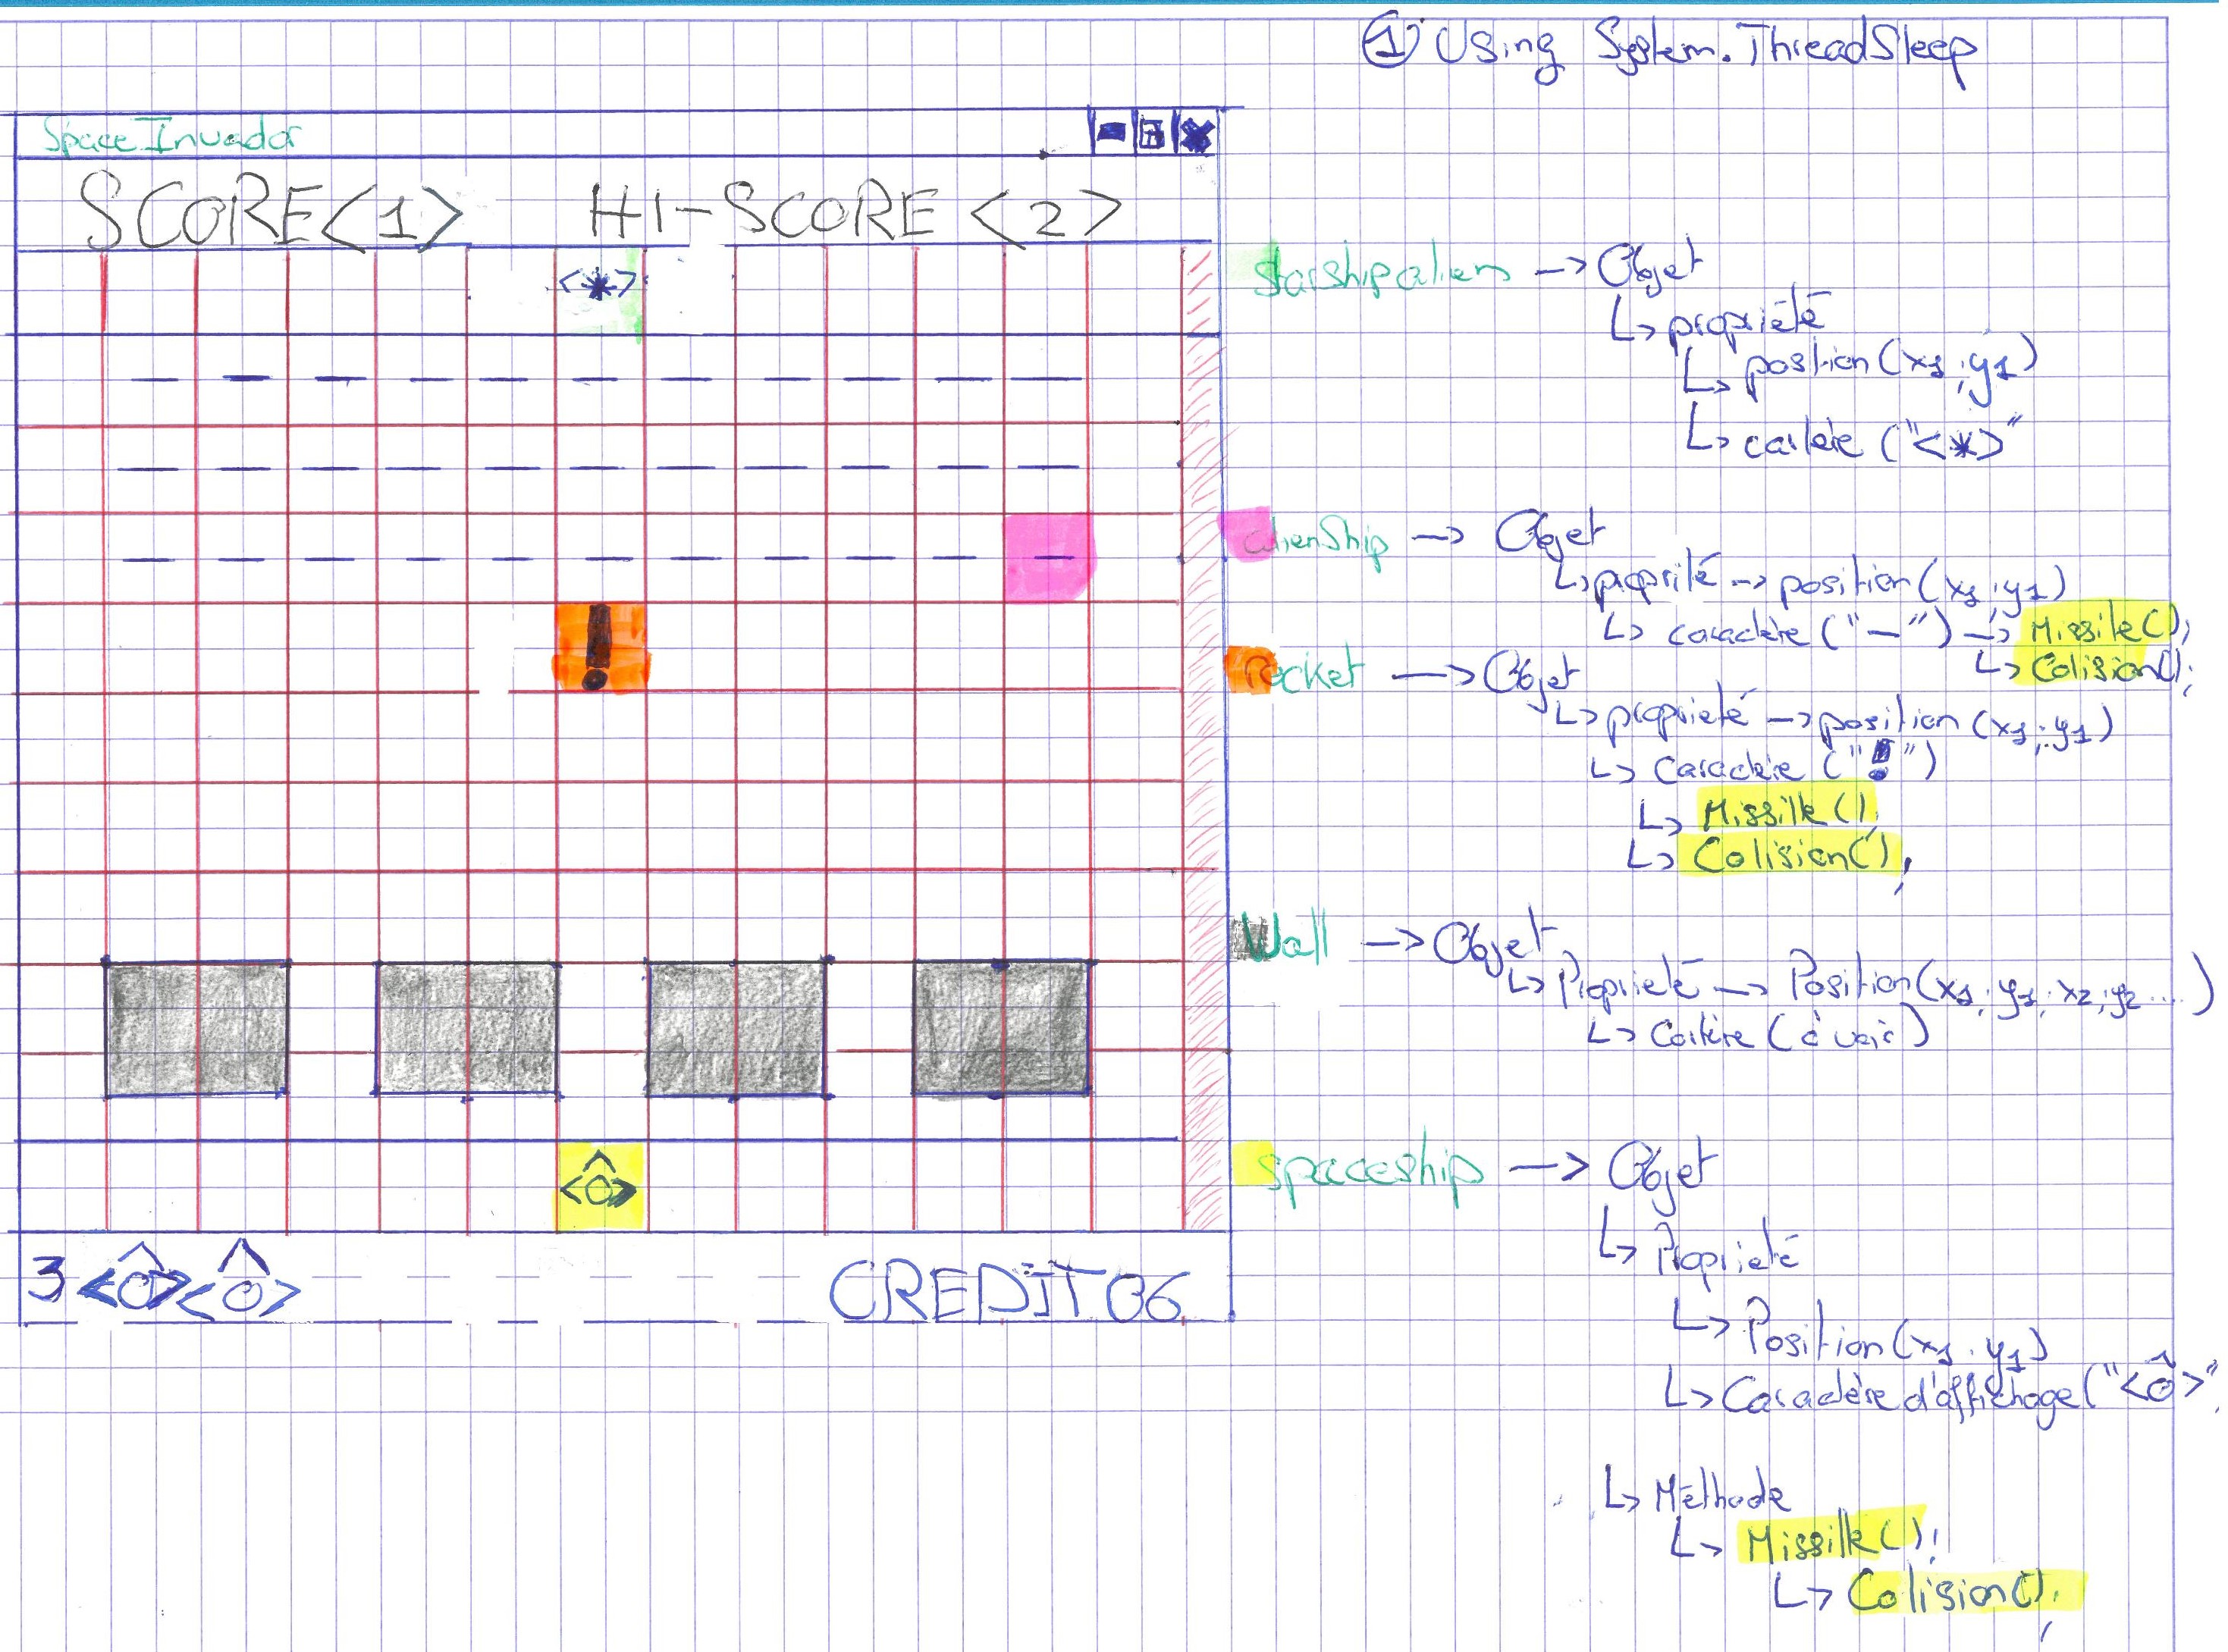 ① Using System.ThreadSleep
Space Invador
SCORE<1> HI-SCORE <2>
<*>
!
<Ô>
3 <Ô><Ô> CREDIT 06
starshipaliens -> Objet
propriété
position (x1;y1)
("<*>"
alienShip -> Objet
proprité -> position (x1;y1)
caractère ("-") -> Missile();
Colision();
rocket -> Objet
propriété -> position (x1;y1)
Caractère ("!")
Missile();
Colision();
Wall -> Objet
Propriété -> Position (x1;y1;x2;y2...)
(à voir)
spaceship -> Objet
Propriété
Position (x1;y1)
Caractère d'affichage ("<ô>"
Méthode
Missile();
Colision();